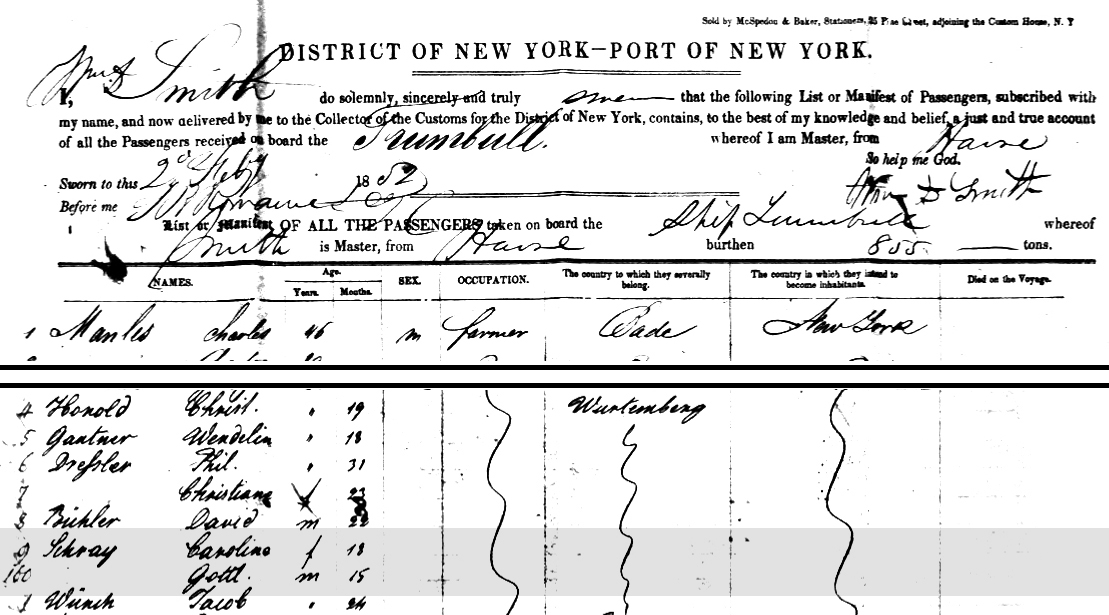 Sold by McSpedon & Baker, Stationers, 25 Pine Street, adjoining the Custom House, N. Y
DISTRICT OF NEW YORK—PORT OF NEW YORK.
I, Wm D Smith do solemnly, sincerely and truly swear that the following List or Manifest of Passengers, subscribed with
my name, and now delivered by me to the Collector of the Customs for the District of New York, contains, to the best of my knowledge and belief, a just and true account
of all the Passengers received on board the Trumbull. whereof I am Master, from Havre
So help me God.
Sworn to this 2d Feby 1852 Wm D Smith
Before me
List or Manifest OF ALL THE PASSENGERS taken on board the Ship Trumbull whereof
Smith is Master, from Havre burthen 855 tons.
NAMES. Age. Years. Months. SEX. OCCUPATION. The country to which they severally belong. The country in which they intend to become inhabitants. Died on the Voyage.
1 Manles Charles 46 m farmer Bade New York
4 Honold Christ. " 19 Wurtemberg
5 Gantner Wendelin " 18
6 Dressler Phil. " 31
7 Christiana f 23
8 Bühler David m 22
9 Schray Caroline f 18
100 Gottl. m 15
1 Wünch Jacob " 24